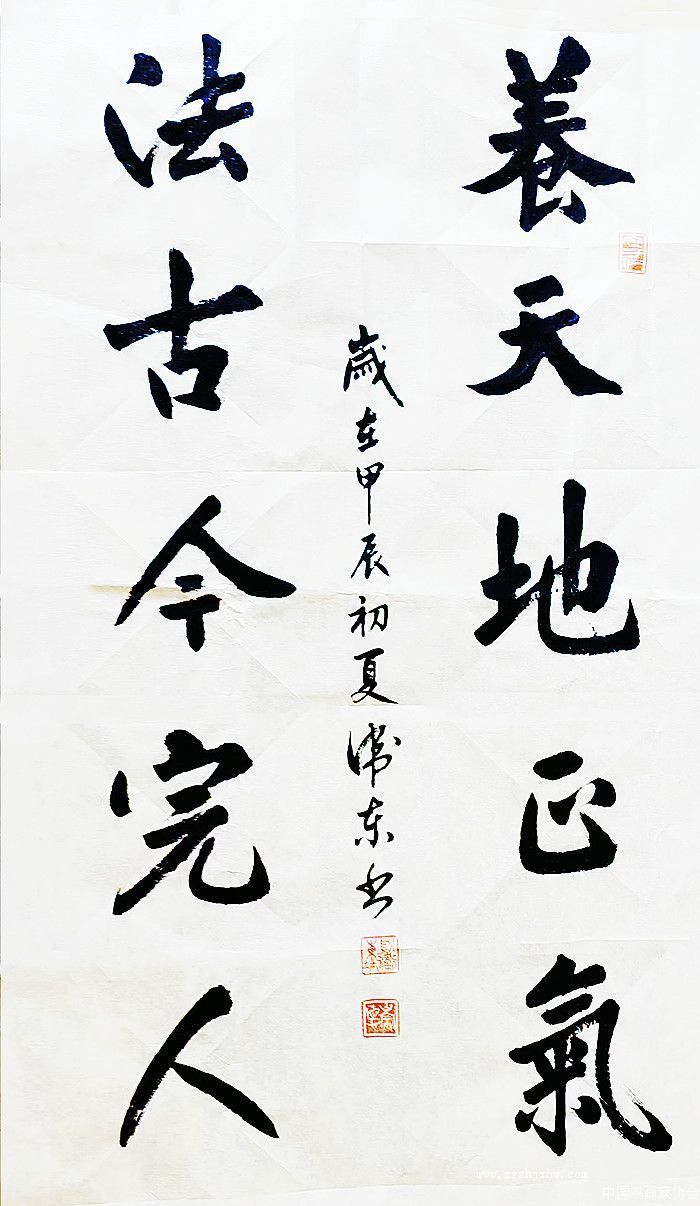 養天地正氣
歲在甲辰初夏衛東书
法古今完人
www.zgshjxhw.com
中国书画家协会